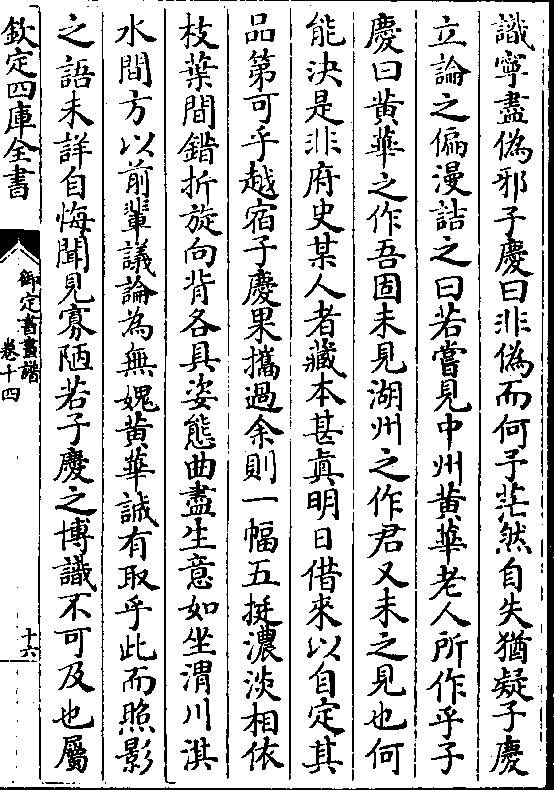 識寧盡偽邪子慶曰非偽而何予茫然自失猶疑子慶
立論之偏漫詰之曰若嘗見中州黄華老人所作乎子
慶曰黄華之作吾固未見湖州之作君又未之見也何
能決是非府史某人者藏本甚真明日借來以自定其
品第可乎越宿子慶果攜過余則一幅五挺濃淡相依
枝葉間錯折旋向背各具姿態曲盡生意如坐渭川淇
水間方以前輩議論為無媿黄華誠有取乎此而照影
之語未詳自悔聞見寡陋若子慶之博識不可及也屬
欽定四庫全書
御定書畫譜
卷十四
十六